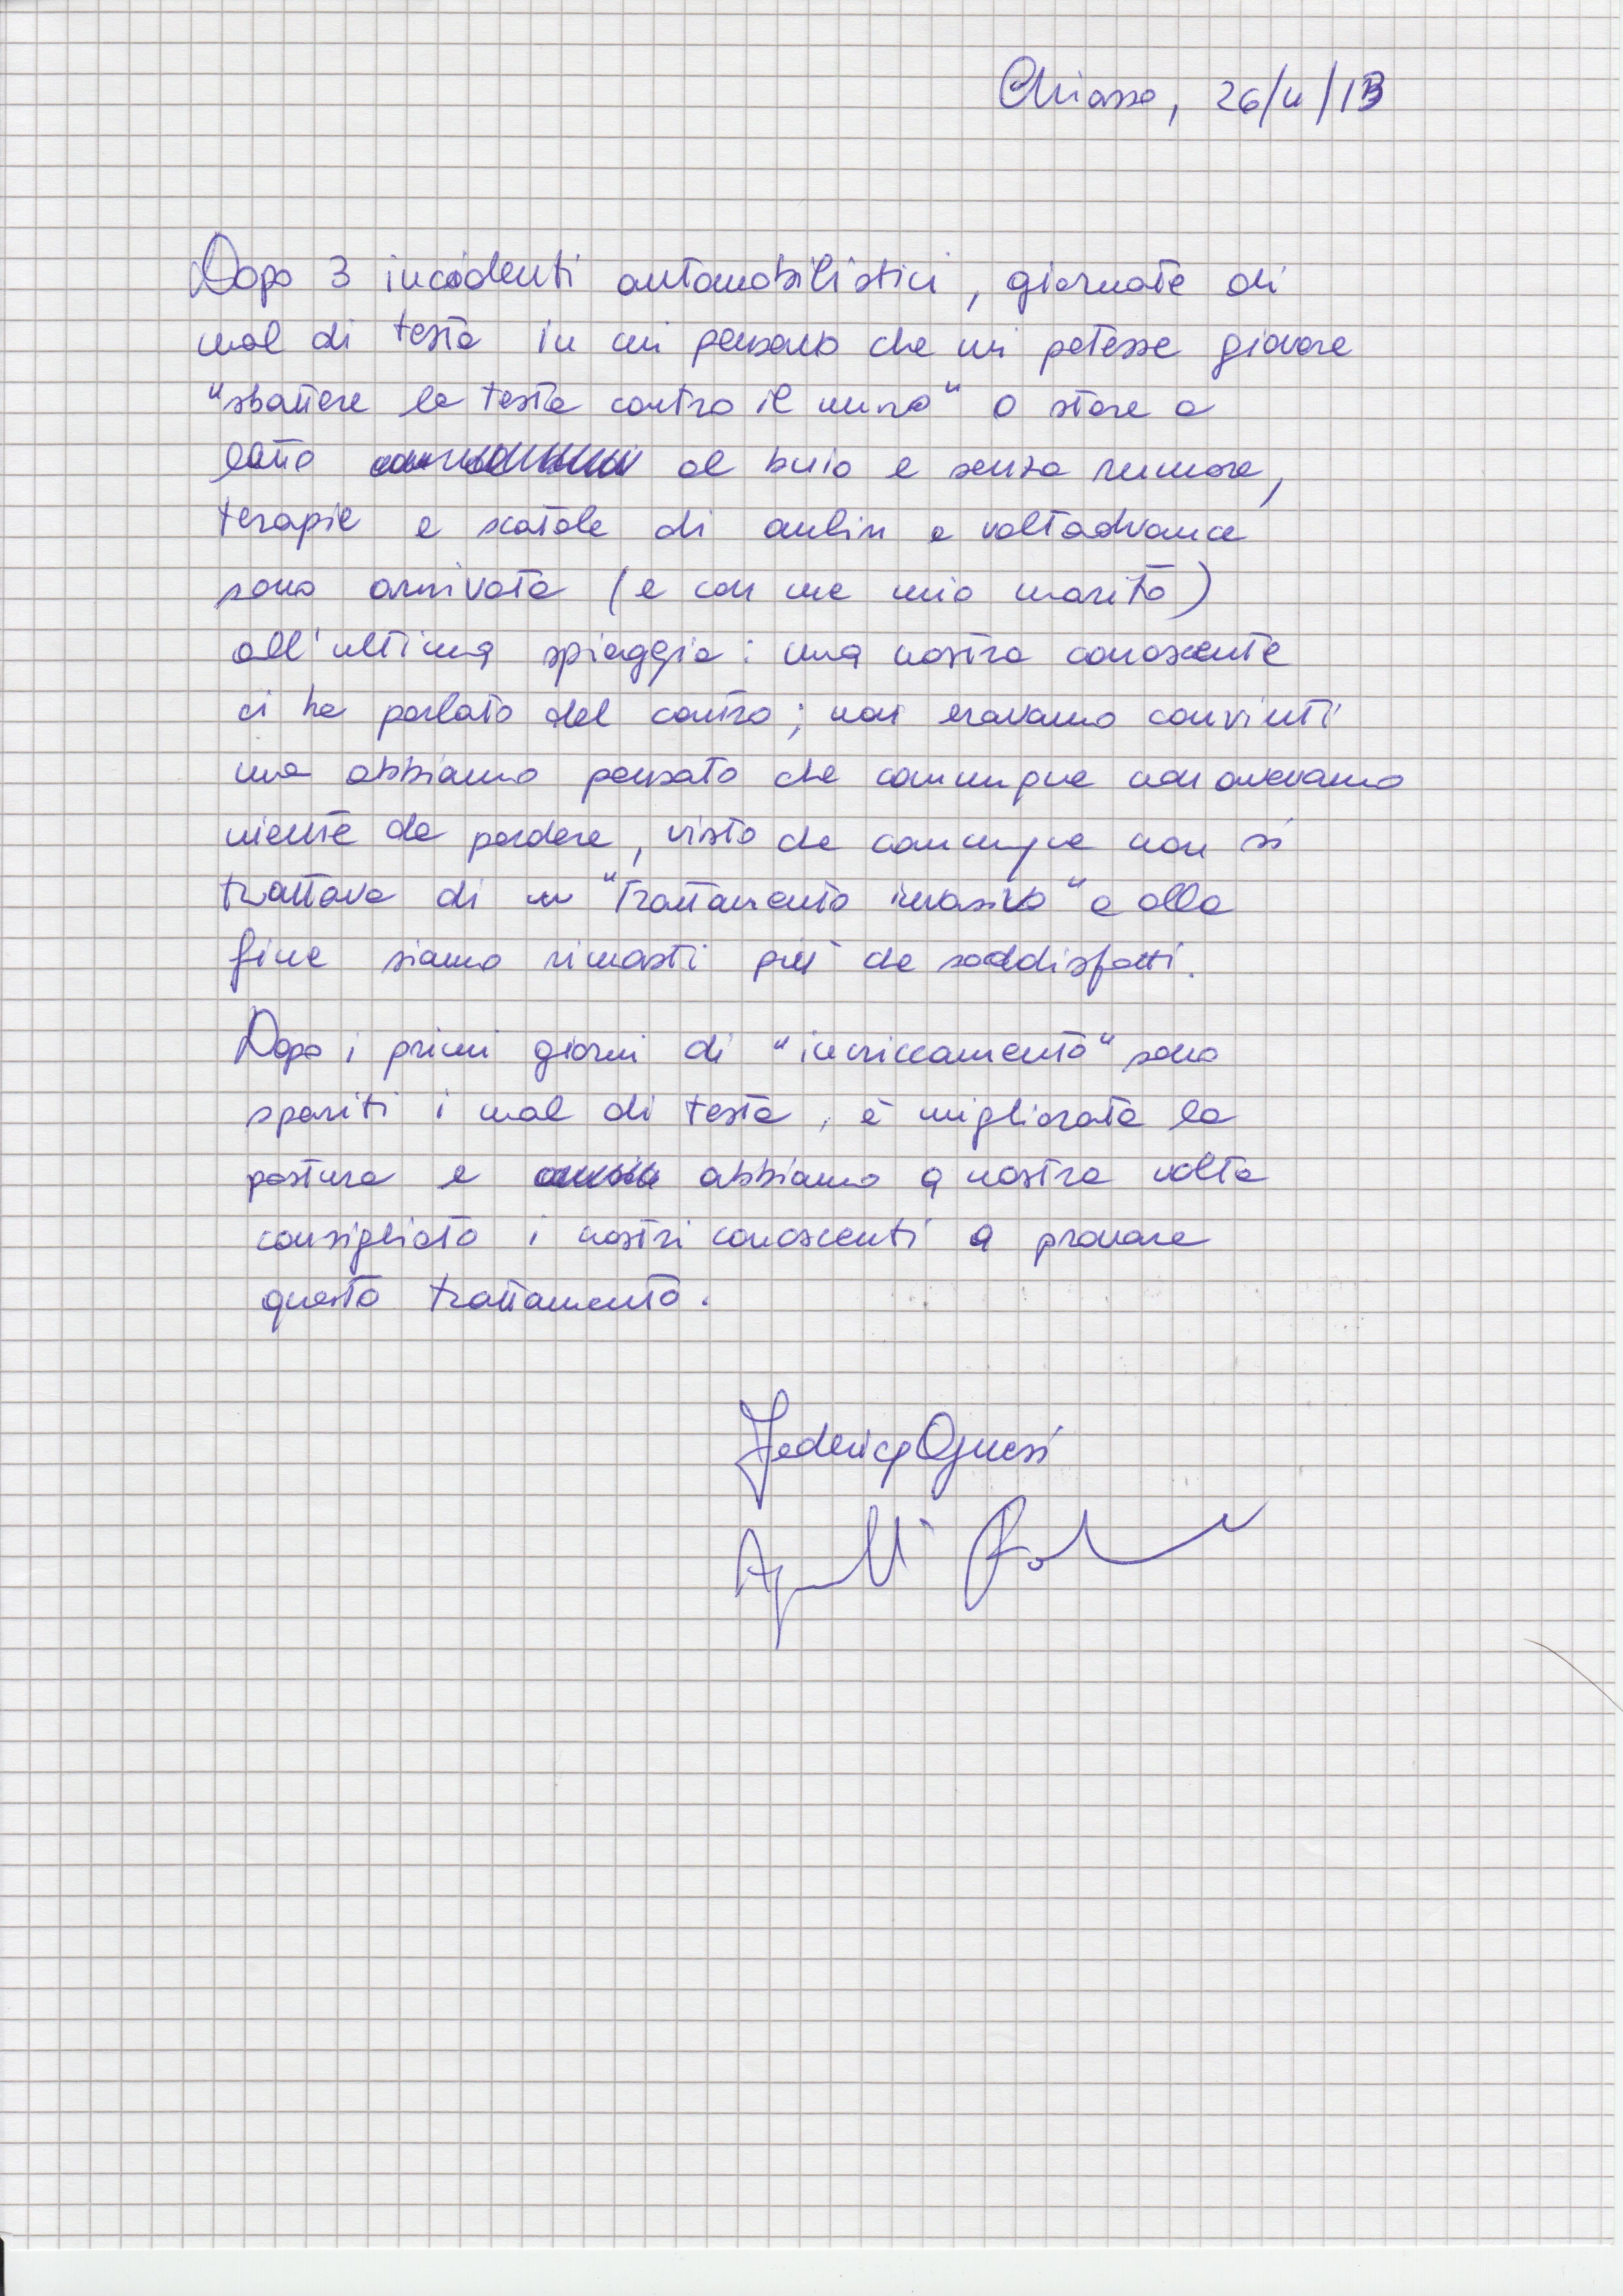 Chiasso, 26/4/13
Dopo 3 incidenti automobilistici, giornate di
mal di testa in cui pensavo che mi potesse giovare
"sbattere la testa contro il muro" o stare a
letto al buio e senza rumore,
terapie e scatole di aulin e voltadvance
sono arrivata (e con me mio marito)
all'ultima spiaggia: una nostra conoscente
ci ha parlato del centro; non eravamo convinti
ma abbiamo pensato che comunque non avevamo
niente da perdere, visto che comunque non si
trattava di un "trattamento invasivo" e alla
fine siamo rimasti più che soddisfatti.
Dopo i primi giorni di "incriccamento" sono
spariti i mal di testa, è migliorata la
postura e abbiamo a nostra volta
consigliato i nostri conoscenti a provare
questo trattamento.
Federica